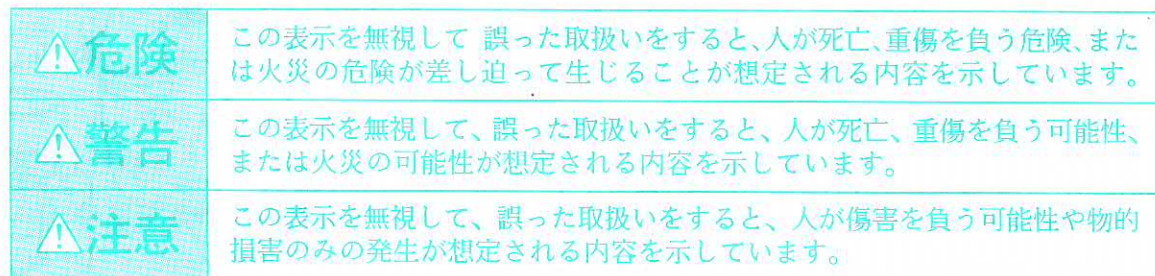 ⚠危険
この表示を無視して 誤った取扱いをすると、人が死亡、重傷を負う危険、また
は火災の危険が差し迫って生じることが想定される内容を示しています。
⚠警告
この表示を無視して、誤った取扱いをすると、人が死亡、重傷を負う可能性、
または火災の可能性が想定される内容を示しています。
⚠注意
この表示を無視して、誤った取扱いをすると、人が傷害を負う可能性や物的
損害のみの発生が想定される内容を示しています。